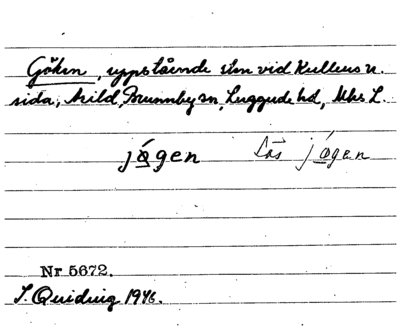 Göken, uppstående stn vid Kullens n.
sida, Arild, Brunnby sn, Luggude hd, Mhs L.
jøgen Läs jøgen
Nr 5672.
I. Quiding 1946.